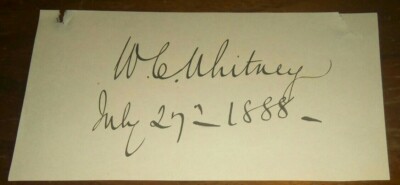 W. C. Whitney
July 27th 1888 -